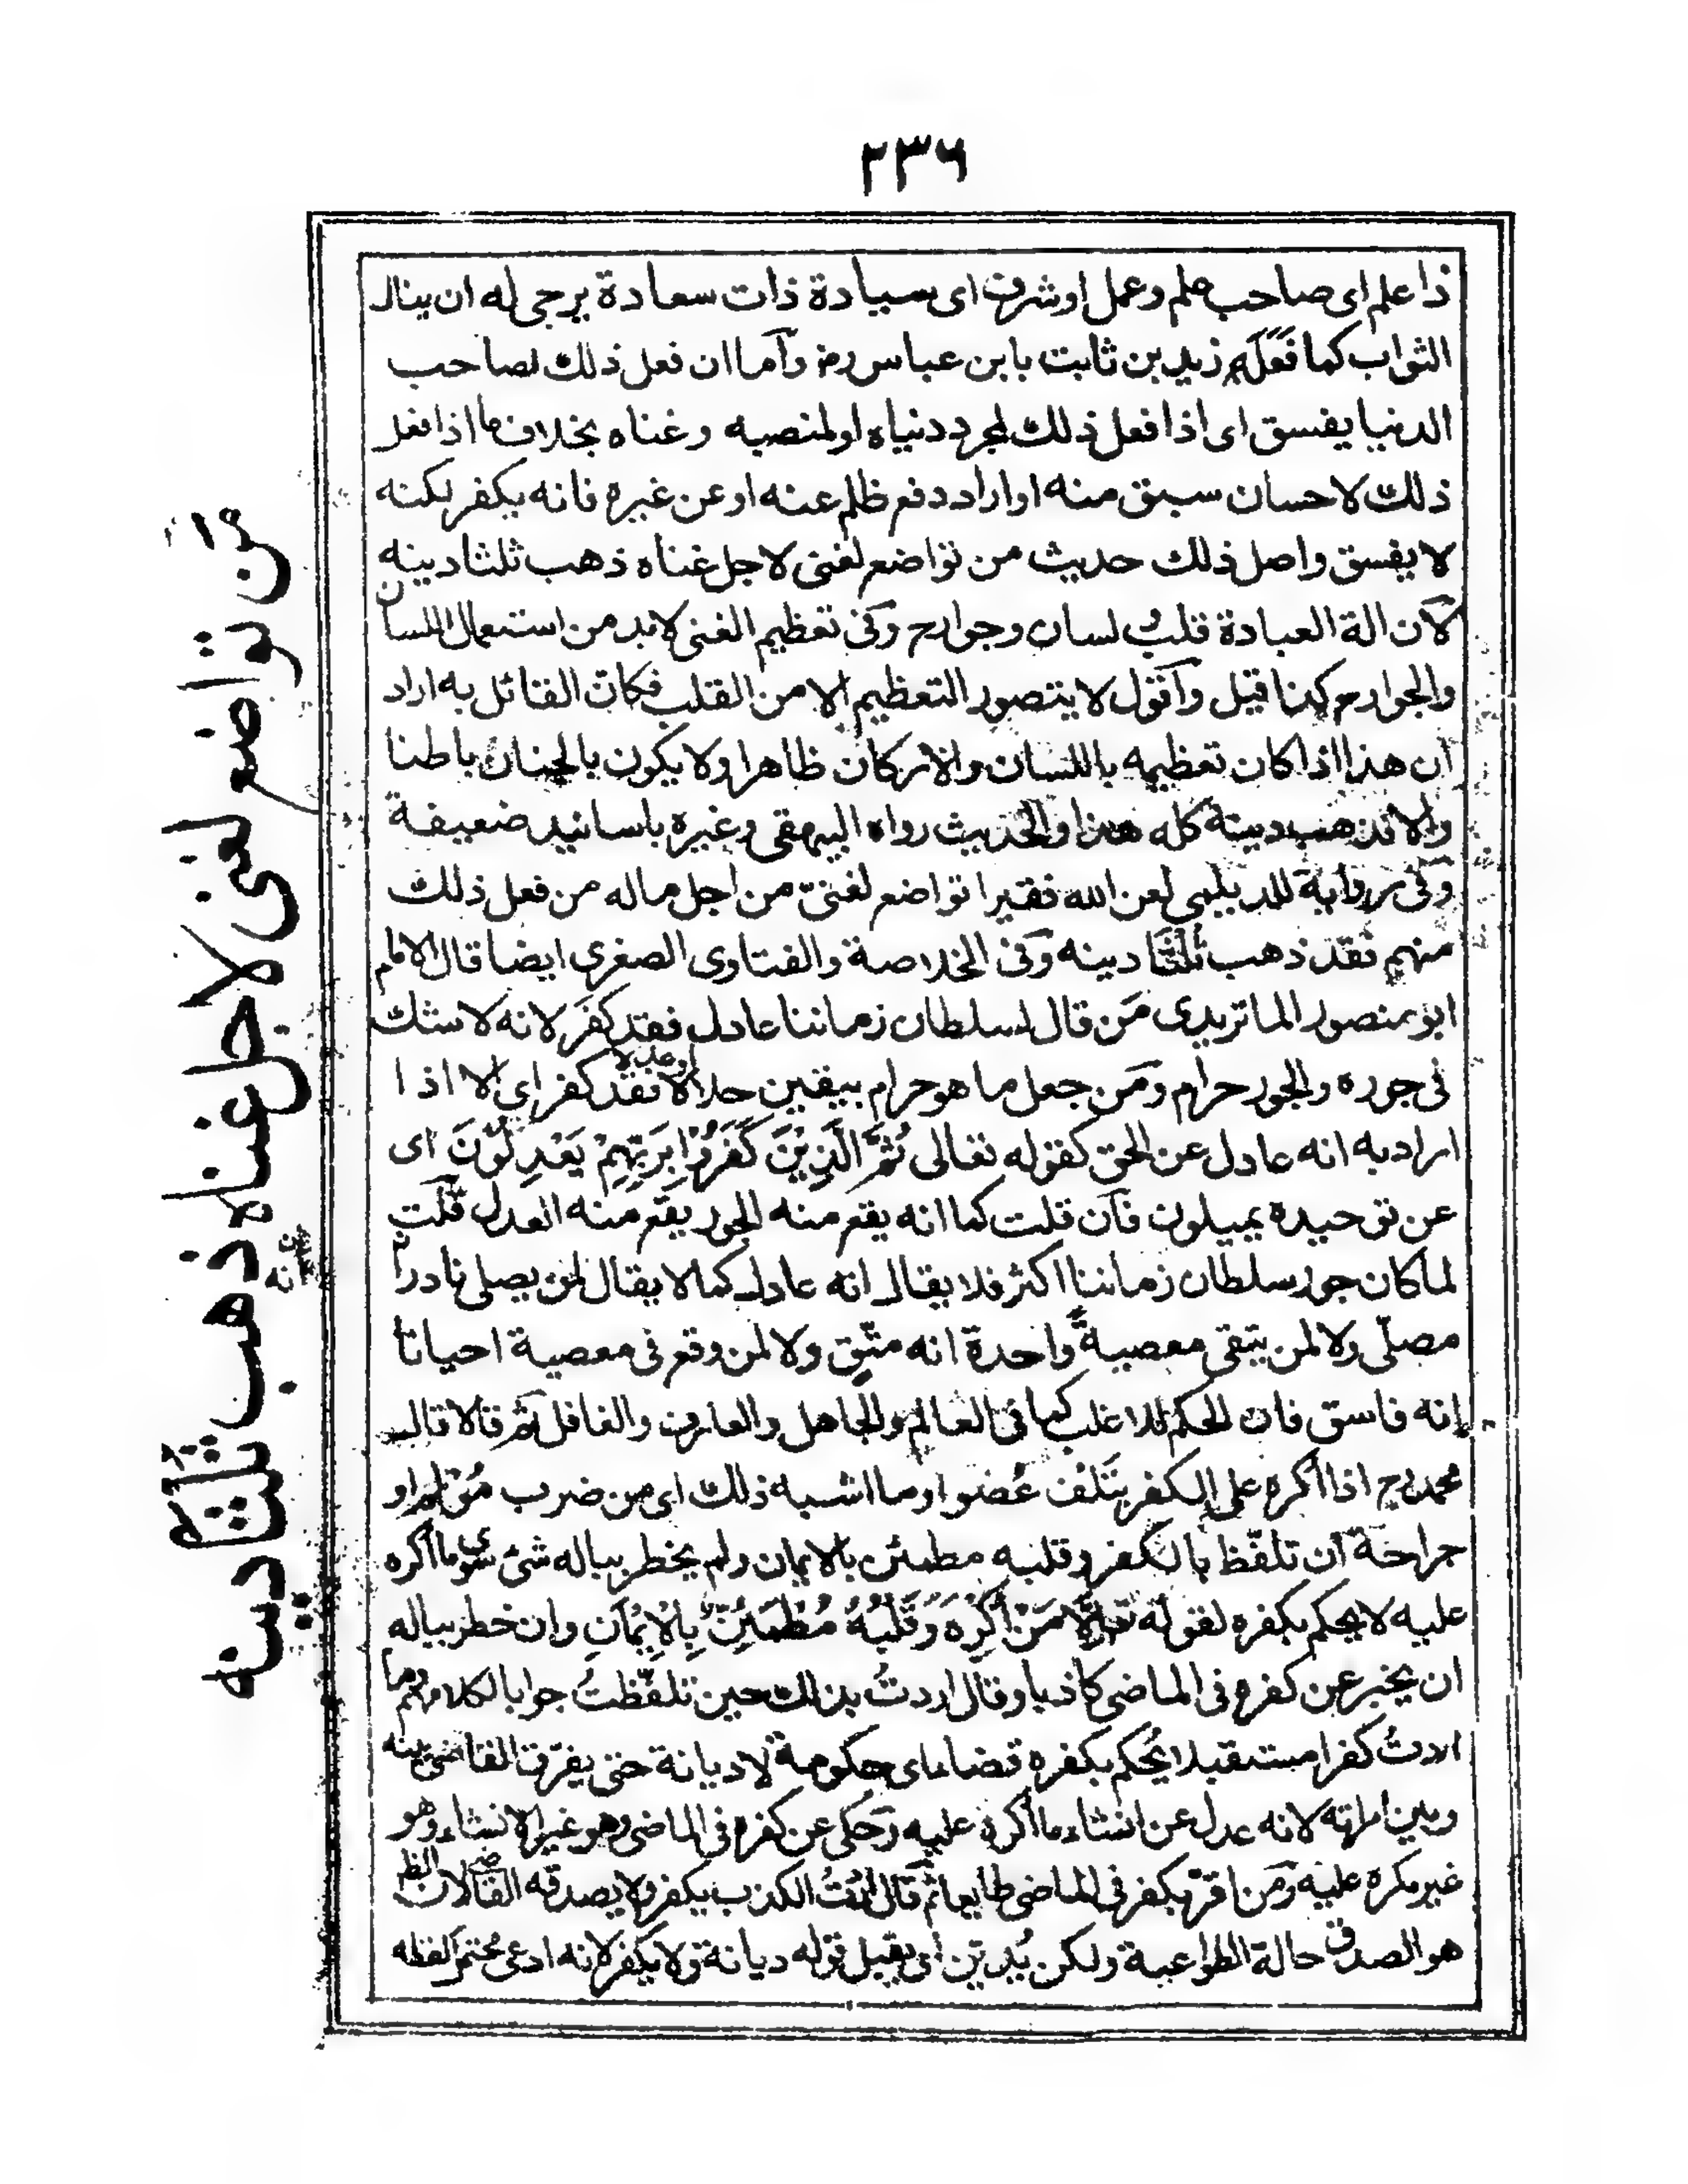 ٢٣٦
ذا علم اى صاحب علم وعمل او شرف اى سيادة ذات سعادة يرجى له ان ينال
الثواب كما فعله زيد بن ثابت بابن عباس رض وآما ان فعل ذلك لصاحب
الدنيا يفسق اى اذا فعل ذلك لمجرد دنياه او لمنصبه وغناه بخلاف ما اذا فعل
ذلك لاحسان سبق منه او اراد دفع ظلم عنه او عن غيره فانه يكفر لكنه
لا يفسق واصل ذلك حديث من تواضع لغنى لاجل غناه ذهب ثلثا دينه
لآن الة العبادة قلب لسان وجوارح وفى تعظيم الغنى لابد من استعمال اللسان
والجوارح كذا قيل وآقول لا يتصور التعظيم الا من القلب فكان القائل به اراد
ان هذا اذا كان تعظيمه باللسان والاركان ظاهرا ولا يكون بالجنان باطنا
والا فذهب دينه كله هذا والحديث رواه البيهقى وغيره باسانيد ضعيفة
وفى رواية للديلمى لعن الله فقيرا تواضع لغنىّ من اجل ماله من فعل ذلك
منهم فقد ذهب ثلثا دينه وفى الخلاصة والفتاوى الصغرى ايضا قال الامام
ابو منصور الماتريدى مَن قال لسلطان زماننا عادل فقد كفر لانه لا شك
فى جوره والجور حرام ومَن جعل ما هو حرام بيقين حلالا فقد كفر اى الا اذا
اراد به انه عادل عن الحق كقوله تعالى ثُمَّ الَّذِيْنَ كَفَرُوْا بِرَبِّهِمْ يَعْدِلُوْنَ اى
عن توحيده يميلون فآن قلت كما انه يقع منه الجور يقع منه العدل قلت
لما كان جور سلطان زماننا اكثر فلا يقال انه عادل كما لا يقال لمن يصلى نادرا
مصلّى ولا لمن يتقى معصيةً واحدة انه متّقٍ ولا لمن وقع فى معصية احيانا
انه فاسق فان الحكم للاغلب كما فى العالم والجاهل والعارف والغافل ثم قالا قال
محمد رح اذا اكره على الكفر بتَلف عُضو او ما اشبه ذلك اى من ضرب مُؤلم او
جراحة ان تلفّظ بالكفر وقلبه مطمئن بالايمان ولم يخطر بباله شئ سوى ما اكره
عليه لا يحكم بكفره لقوله تع اِلَّا مَنْ اُكْرِهَ وَقَلْبُهُ مُطْمَئِنٌّ بِالْاِيْمَانِ وان خطر بباله
ان يخبر عن كفره فى الماضى كاذبا وقال اردتُ بذلك حين تلفّظتُ جوابا لكلامهم وما
اردتُ كفرا مستقبلا يُحكم بكفره قضاء اى حكومة لا ديانة حتى يفرّق القاضى بينه
وبين امراته لانه عدل عن انشاء ما اكره عليه وحكى عن كفره فى الماضى وهو غير الانشاء وهو
غير مكره عليه ومَن اقرّ بكفر فى الماضى طايعا ثم قال اردتُ الكذب يكفر ولا يصدقه القاضى لان الظ
هو الصدق حالة الطواعية ولكن يُديّن اى يقبل قوله ديانة ولا يكفر لانه ادعى محتمل لفظه
من تواضع لغنى لاجل غناه ذهب ثلثا دينه